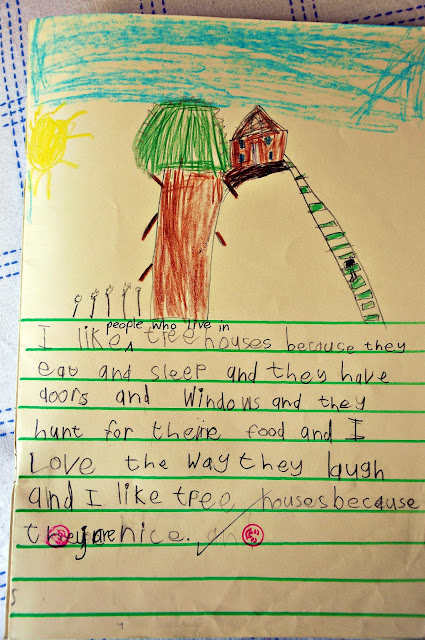 people who live in
I like ^ tree houses because they
eat and sleep and they have
doors and windows and they
hunt for theire food and I
Love the way they laugh
and I like tree houses because
they're nice.